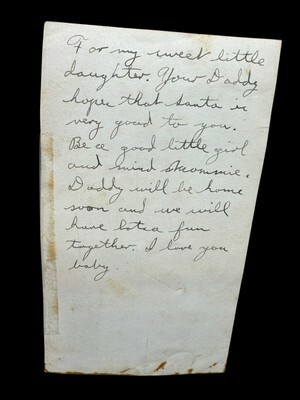 For my sweet little
daughter. Your Daddy
hopes that Santa is
very good to you.
Be a good little girl
and mind
Daddy will be home
soon and we will
have lotsa fun
together. I love you
baby